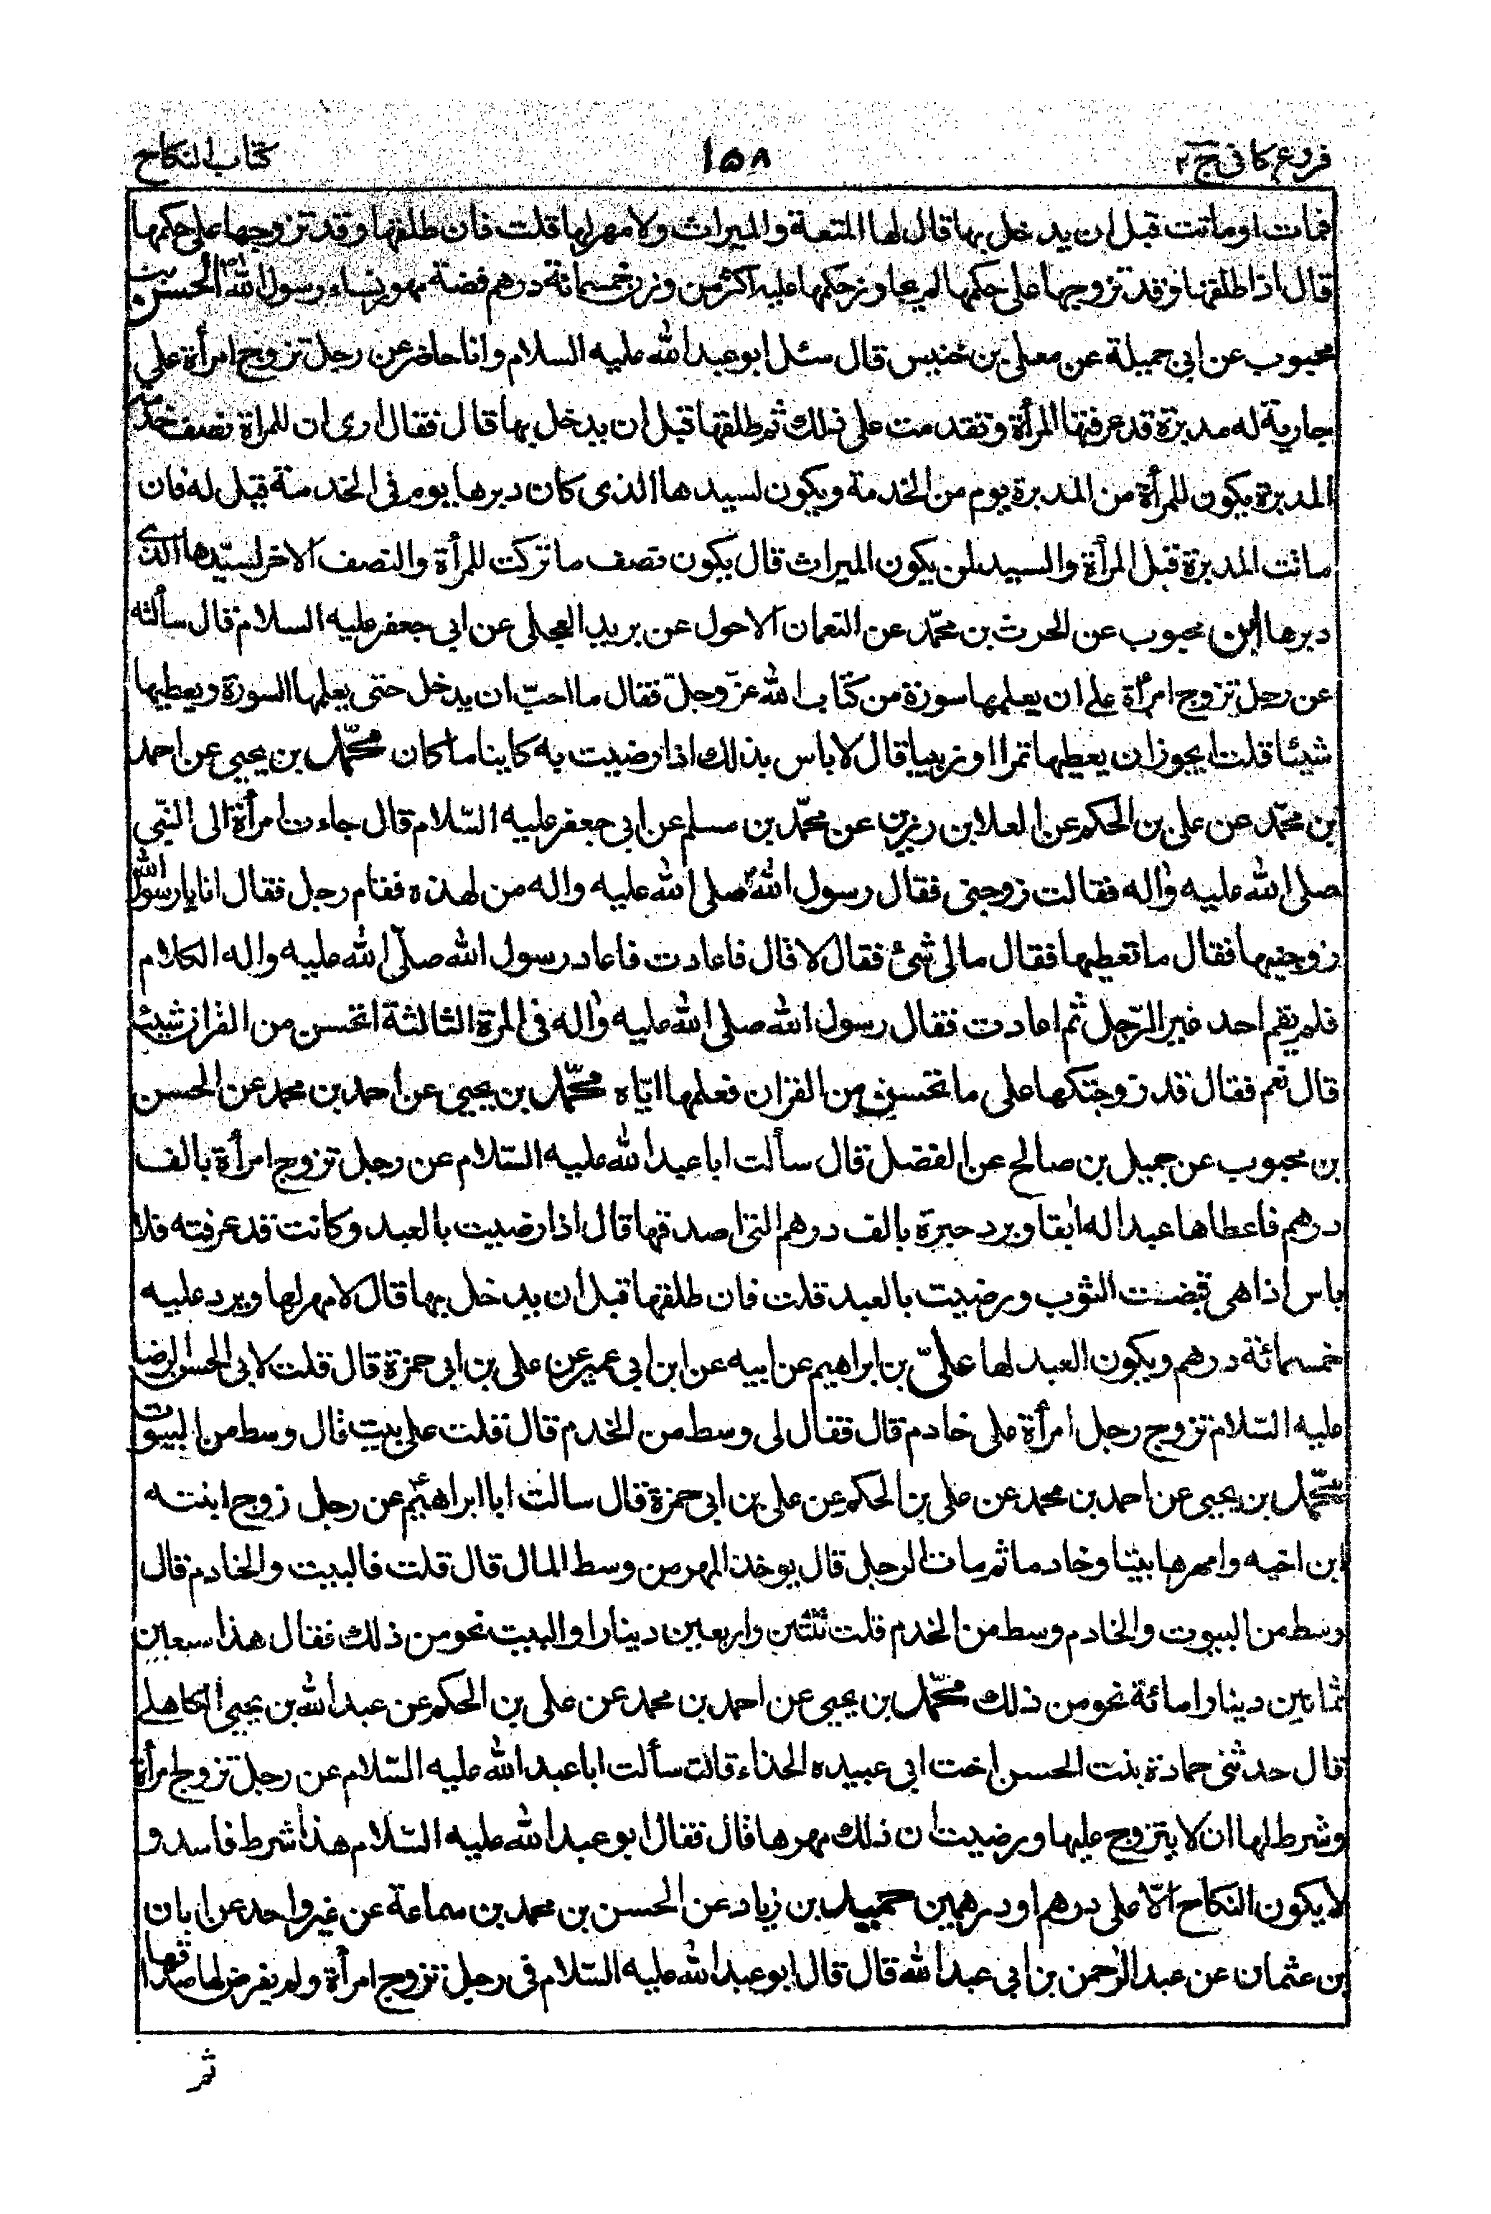 فروع كافى ج ٢
١٥٨
كتاب النكاح
فمات او ماتت قبل ان يدخل بها قال لها المتعة والميراث ولا مهر لها قلت فان طلقها وقد تزوجها على حكمها
قال اذا طلقها وقد تزوجها على حكمها لم يجاوز حكمها عليه اكثر من وزن خمسمائة درهم فضة مهور نساء رسول الله ص الحسن بن
محبوب عن ابى جميلة عن معلى بن خنيس قال سئل ابو عبد الله عليه السلام وانا حاضر عن رجل تزوج امرأة على
جارية له مدبرة قد عرفتها المرأة وتقدمت على ذلك ثم طلقها قبل ان يدخل بها قال فقال ارى ان للمرأة نصف خدمة
المدبرة يكون للمرأة من المدبرة يوم من الخدمة ويكون لسيدها الذى كان دبرها يوم فى الخدمة قيل له فان
ماتت المدبرة قبل المرأة والسيد لمن يكون الميراث قال يكون نصف ما تركت للمرأة والنصف الاخر لسيّدها الذى
دبرها ابن محبوب عن الحرث بن محمّد عن النعمان الاحول عن بريد العجلى عن ابى جعفر عليه السلام قال سألته
عن رجل تزوج امرأة على ان يعلمها سورة من كتاب الله عزّ وجلّ فقال ما احبّ ان يدخل حتى يعلمها السورة ويعطيها
شيئا قلت ايجوز ان يعطيها تمرا او زبيبا قال لا باس بذلك اذا رضيت به كاينا ما كان محمّد بن يحيى عن احمد
بن محمّد عن على بن الحكم عن العلا بن رزين عن محمّد بن مسلم عن ابى جعفر عليه السّلام قال جاءت امرأة الى النبّى
صلى الله عليه واله فقالت زوجنى فقال رسول الله صلى الله عليه واله من لهذه فقام رجل فقال انا يا رسول الله
زوجنيها فقال ما تعطيها فقال مالى شئ فقال لا قال فاعادت فاعاد رسول الله صلّى الله عليه واله الكلام
فلم يقم احد غير الرّجل ثم اعادت فقال رسول الله صلى الله عليه واله فى المرة الثالثة اتحسن من القران شيئا
قال نعم فقال قد زوجتكها على ما تحسن من القران فعلمها ايّاه محمّد بن يحيى عن احمد بن محمد عن الحسن
بن محبوب عن جميل بن صالح عن الفضل قال سألت ابا عبد الله عليه السّلام عن رجل تزوج امرأة بالف
درهم فاعطاها عبدا له ابقا وبرد حبرة بالف درهم التى اصدقها قال اذا رضيت بالعبد وكانت قد عرفته فلا
باس اذا هى قبضت الثوب ورضيت بالعبد قلت فان طلقها قبل ان يدخل بها قال لا مهر لها ويرد عليه
خمسمائة درهم ويكون العبد لها علىّ بن ابراهيم عن ابيه عن ابن ابى عمير عن على بن ابى حمزة قال قلت لابى الحسن الرضا
عليه السّلام تزوج رجل امرأة على خادم قال فقال لى وسط من الخدم قال قلت على بيت قال وسط من البيوت
محمّد بن يحيى عن احمد بن محمد عن على بن الحكم عن على بن ابى حمزة قال سالت ابا ابراهيم ع عن رجل زوج ابنته
ابن اخيه وامهرها بيتا وخادما ثم مات الرجل قال يوخذ المهر من وسط المال قال قلت فالبيت والخادم قال
وسط من البيوت والخادم وسط من الخدم قلت ثلثين واربعين دينارا والبيت نحو من ذلك فقال هذا سبعين
ثمانين دينارا مائة نحو من ذلك محمّد بن يحيى عن احمد بن محمد عن على بن الحكم عن عبد الله بن يحيى الكاهلى
قال حدثنى حمادة بنت الحسن اخت ابى عبيده الحذاء قالت سألت ابا عبد الله عليه السّلام عن رجل تزوج امرأة
وشرط لها ان لا يتزوج عليها ورضيت ان ذلك مهرها قال فقال ابو عبد الله عليه السّلام هذا شرط فاسد و
لا يكون النكاح الّا على درهم او درهمين حميد بن زياد عن الحسن بن محمد بن سماعة عن غير واحد عن ابان
بن عثمان عن عبد الرحمن بن ابى عبد الله قال قال ابو عبد الله عليه السّلام فى رجل تزوج امرأة ولم يفرض لها صداقها
ثم